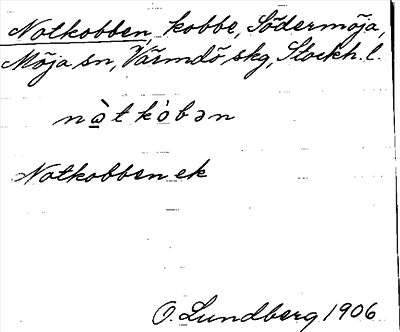 Notkobben, kobbe, Södermöja,
Möja sn, Värmdö skg, Stockh. l.
nà̱tkòbən
Notkobben ek
O. Lundberg 1906